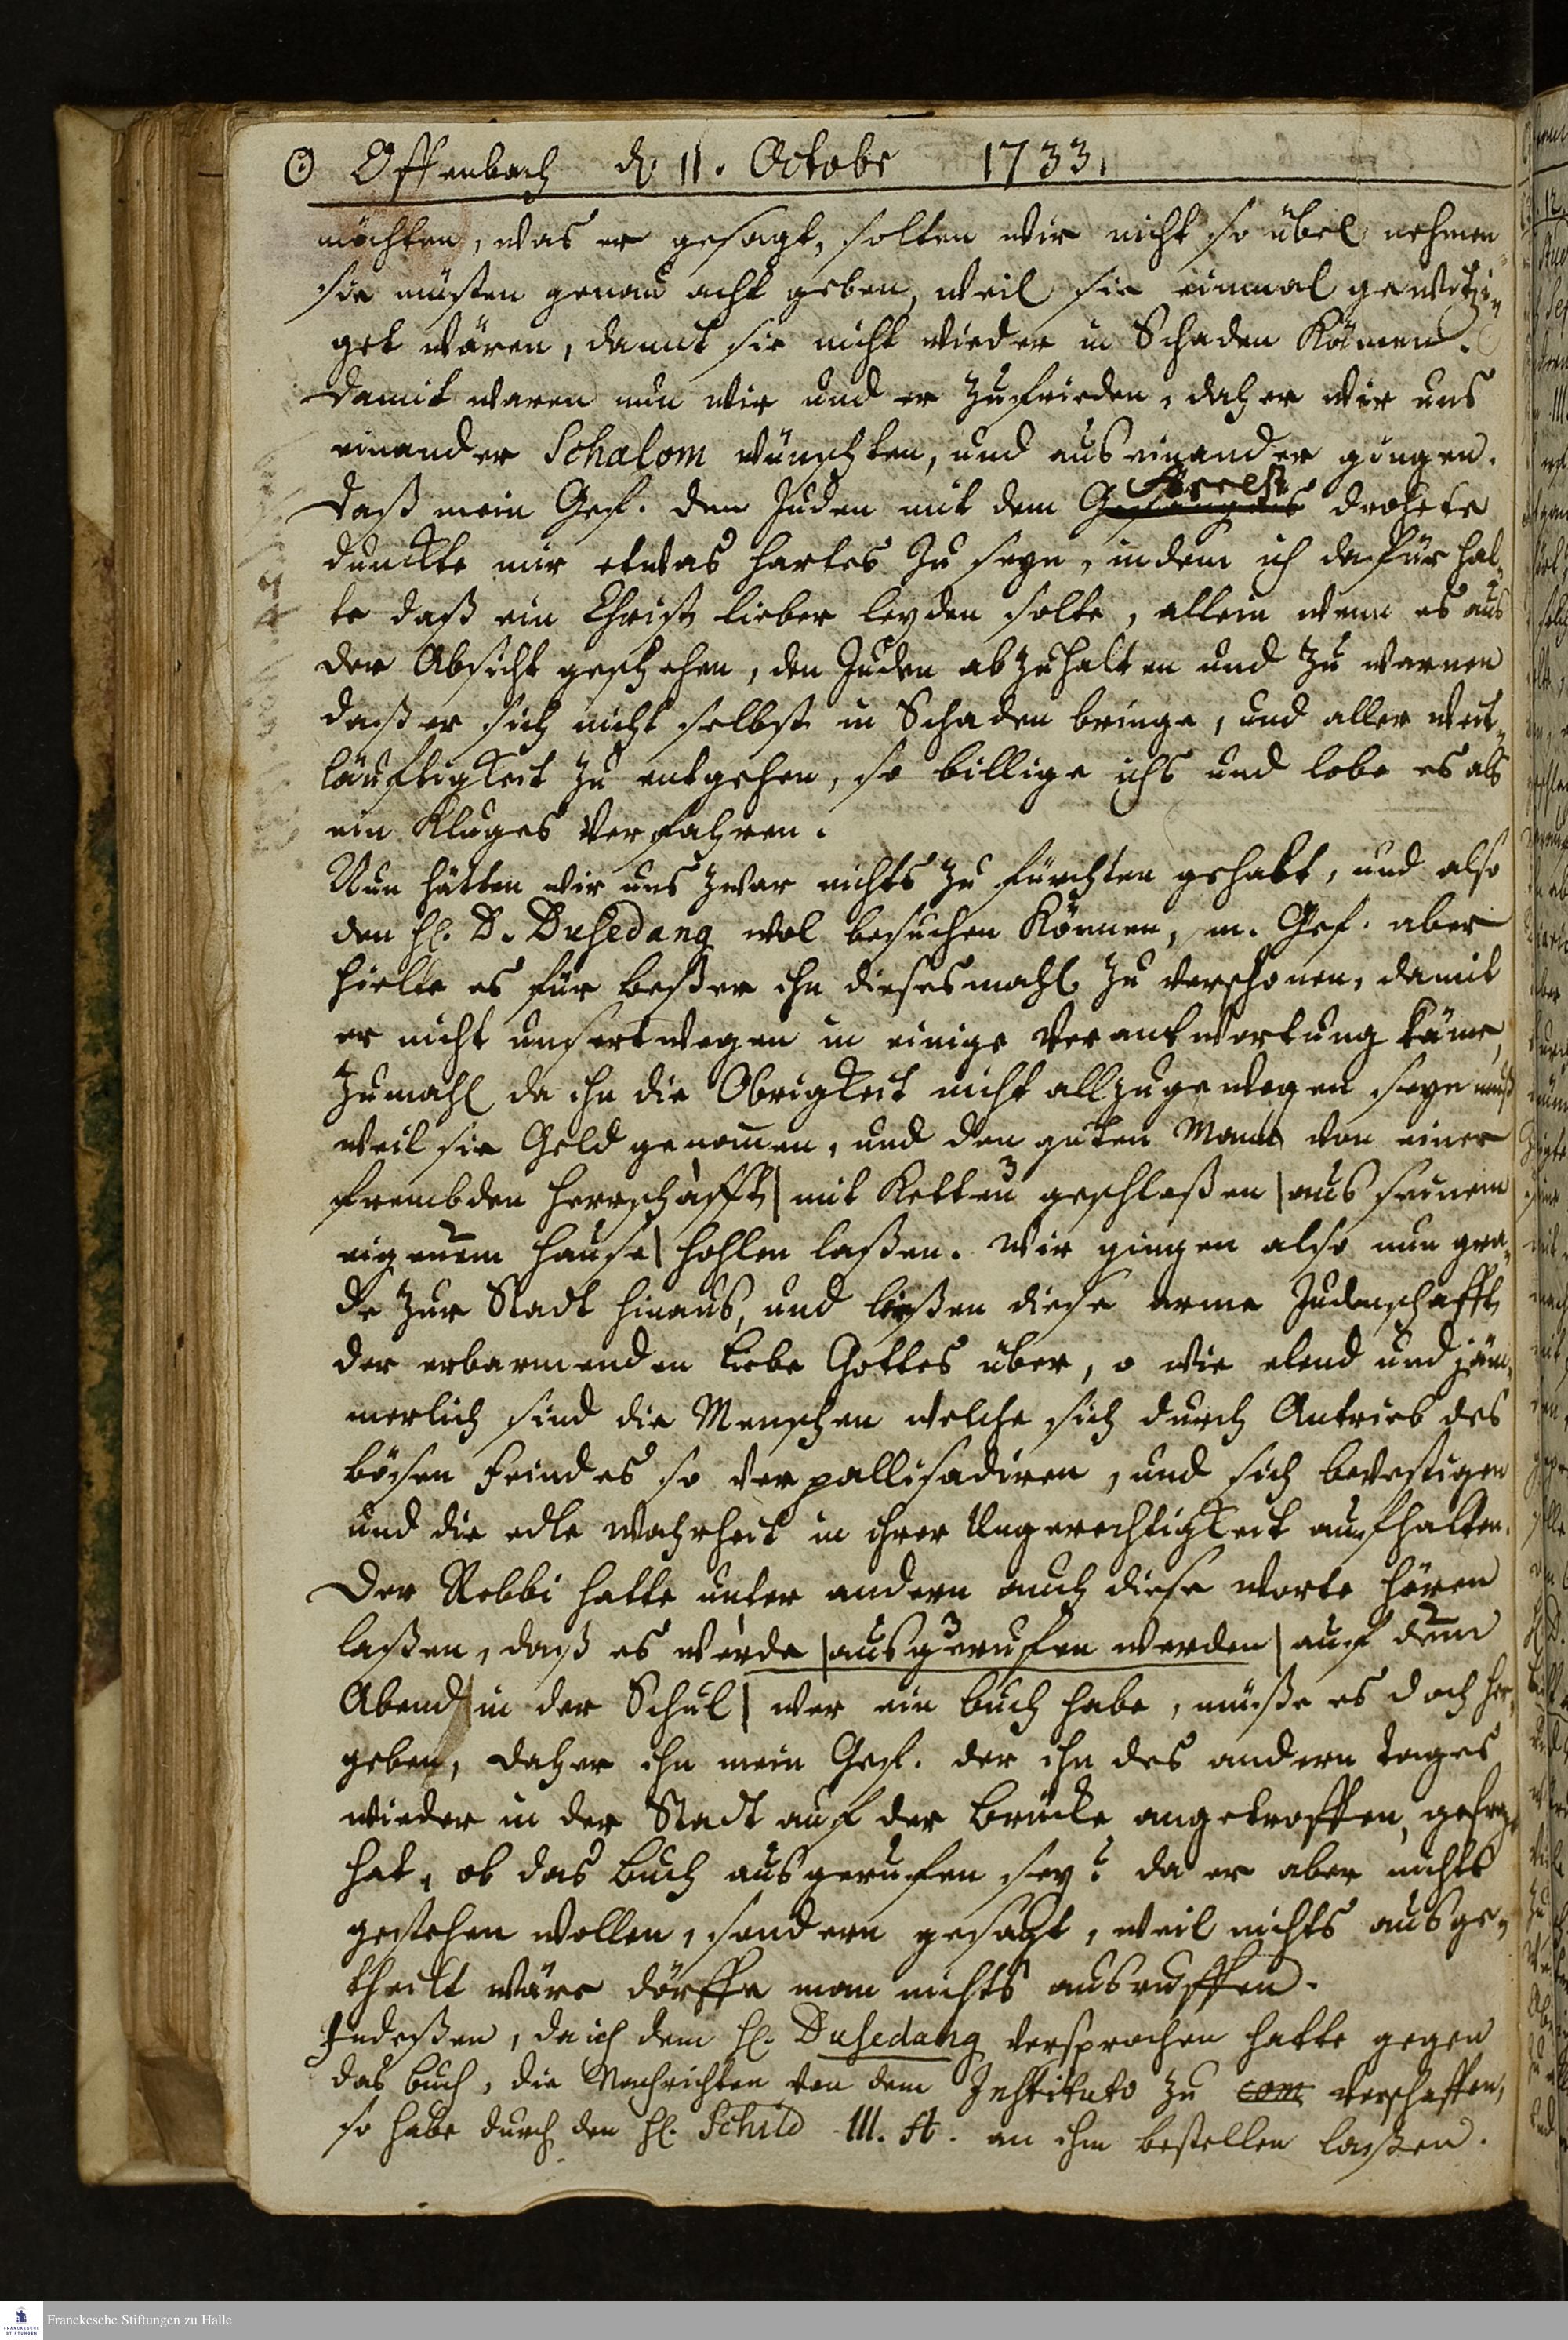 ☉ Offenbach d. 11. Octobr 1733.
möchten, was er gesagt, solten wir nicht so übel nehmen
sie müsten genau acht geben, weil sie einmal gewitzi-
get wären, damit sie nicht wieder in Schaden kämen.
Damit waren nun wir und er zufrieden, daher wir uns
einander Schalom wünschten, und auseinander gingen.
Daß mein Gef. den Juden mit dem Gefängnis Arrest drohete
dünckte mir etwas hartes zu seyn, indem ich dafür hal-
te daß ein Christ lieber leyden solte, allein wenn es aus
der Absicht geschehen, den Juden abzuhalten und zu warnen
daß er sich nicht selbst in Schaden bringe, und aller weit-
läuftigkeit zu entgehen, so billige ichs und lobe es als
ein kluges Verfahren.
Nun hätten wir uns zwar nichts zu fürchten gehabt, und also
den H. D. Dusedang wol besuchen können, m. Gef. aber
hielte es für beßer ihn diesesmahl zu verschonen, damit
er nicht unsertwegen in einige Verantwortung käme,
zumahl da ihn die Obrigkeit nicht allzugewogen seyn muß
weil sie Geld genommen, und den guten Mann von einer
frembden Herrschafft | mit Ketten geschloßen | aus seinem
eigenem Hause | hohlen laßen. Wir gingen also nun gra-
de zur Stadt hinaus, und ließen diese arme Judenschafft
der erbarmenden Liebe Gottes über, o wie elend und jäm-
merlich sind die Menschen welche sich durch Antrieb des
bösen Feindes so verpallisadiren, und sich bevestigen
und die edle Wahrheit in ihrer Ungerechtigkeit aufhalten.
Der Rebbi hatte unter andern auch diese Worte hören
laßen, daß es werde | ausgerufen werden | auf dem
Abend | in der Schul | wer ein Buch habe, müße es doch her-
geben, daher ihn mein Gef. der ihn des andern Tages
wieder in der Stadt auf der Brücke angetroffen, gefragt
hat, ob das Buch ausgerufen sey? da er aber nichts
gestehen wollen, sondern gesagt, weil nichts ausge-
theilt wäre dörffe man nichts ausruffen.
Indeßen, da ich dem H. Dusedang versprochen hatte gegen
das Buch, die Nachrichten von dem Instituto zu com verschaffen,
so habe durch den H. Schild III. St. an ihm bestellen laßen.
Franckesche Stiftungen zu Halle